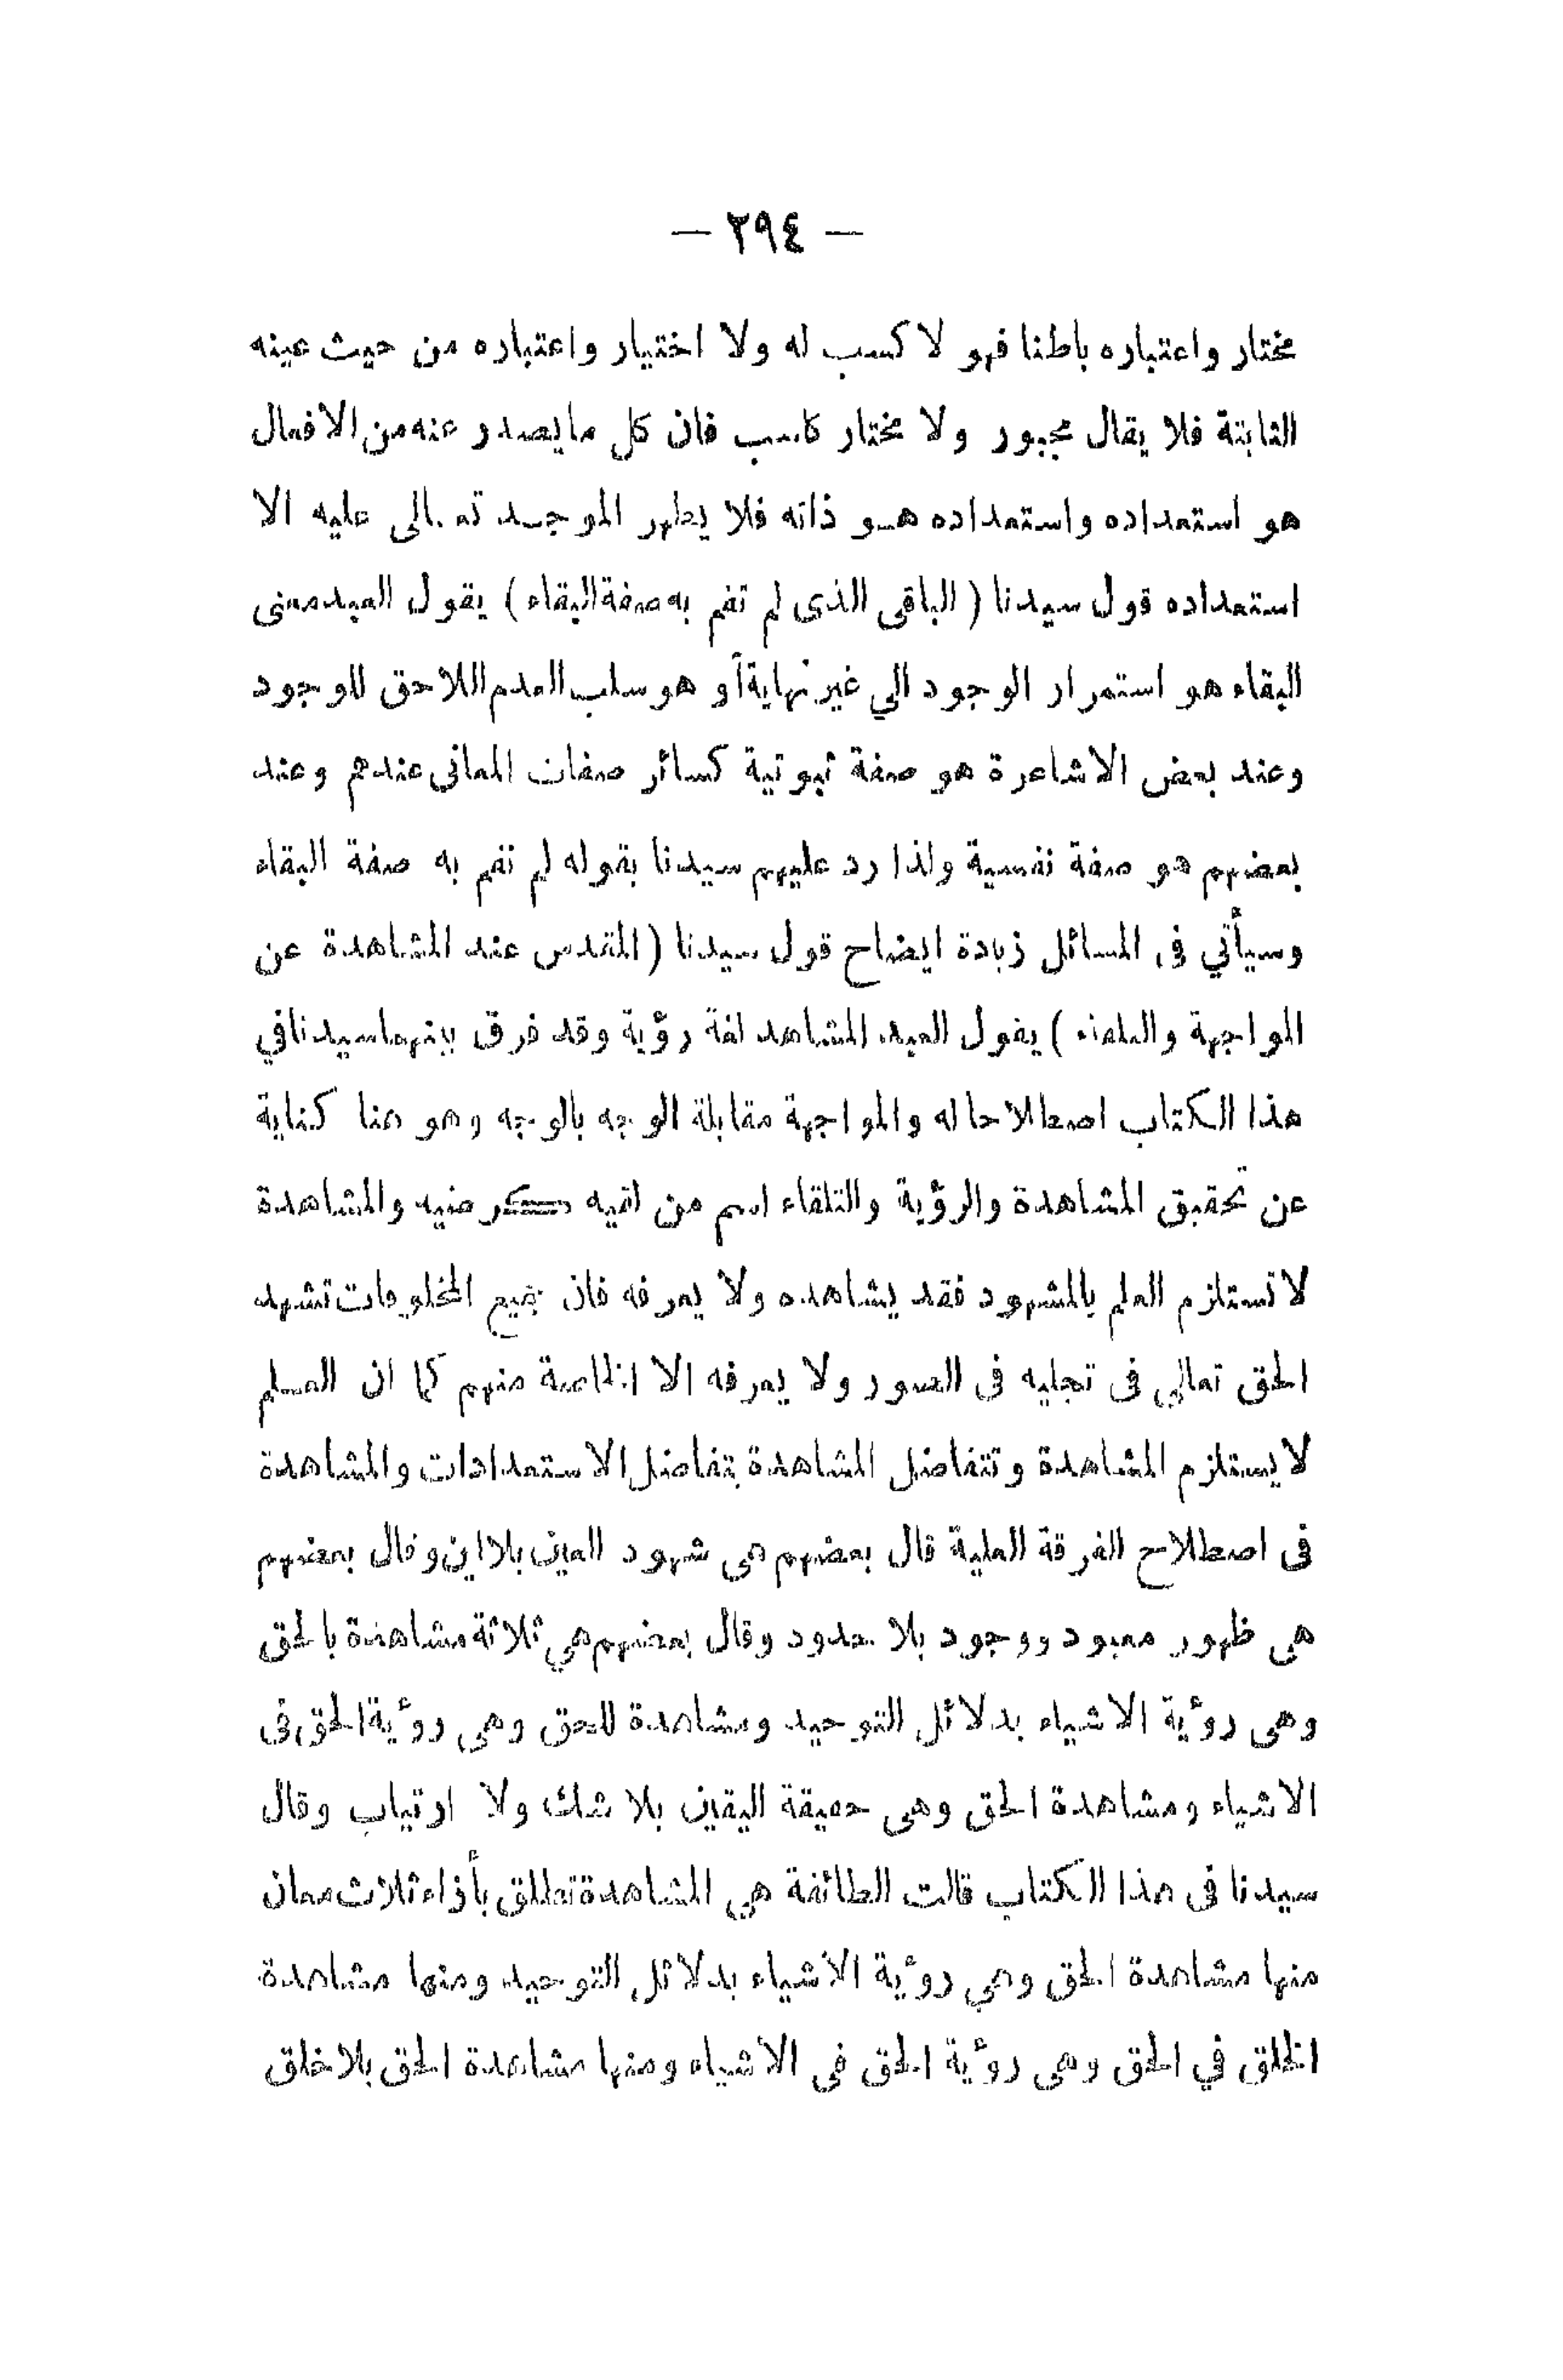 — ٢٩٤ —
مختار واعتباره باطنا فهو لا كسب له ولا اختيار واعتباره من حيث عينه
الثابتة فلا يقال مجبور ولا مختار كاسب فان كل ما يصدر عنه من الافعال
هو استعداده واستعداده هو ذاته فلا يظهر الموجد تعالى عليه الا
استعداده قول سيدنا ( الباقى الذى لم تقم به صفة البقاء ) يقول العبد معنى
البقاء هو استمرار الوجود الي غير نهاية أو هو سلب العدم اللاحق للوجود
وعند بعض الاشاعرة هو صفة ثبوتية كسائر صفات المعانى عندهم وعند
بعضهم هو صفة نفسية ولذا رد عليهم سيدنا بقوله لم تقم به صفة البقاء
وسيأتي فى المسائل زيادة ايضاح قول سيدنا ( المقدس عند المشاهدة عن
المواجهة والتلقاء ) يقول العبد المشاهد لغة رؤية وقد فرق بينهما سيدنا في
هذا الكتاب اصطلاحا له والمواجهة مقابلة الوجه بالوجه وهو هنا كناية
عن تحقيق المشاهدة والرؤية والتلقاء اسم من لقيه كرضيه والمشاهدة
لا تستلزم العلم بالمشهود فقد يشاهده ولا يعرفه فان جميع المخلوقات تشهد
الحق تعالي فى تجليه فى الصور ولا يعرفه الا الخاصة منهم كما ان العلم
لا يستلزم المشاهدة وتتفاضل المشاهدة بتفاضل الاستعدادات والمشاهدة
فى اصطلاح الفرقة العلية قال بعضهم هى شهود العين بلا اين وقال بعضهم
هى ظهور معبود ووجود بلا حدود وقال بعضهم هي ثلاثة مشاهدة بالحق
وهى روٴية الاشياء بدلائل التوحيد ومشاهدة للحق وهى روٴية الحق فى
الاشياء ومشاهدة الحق وهى حقيقة اليقين بلا شك ولا ارتياب وقال
سيدنا فى هذا الكتاب قالت الطائفة هي المشاهدة تطلق بأزاء ثلاث معان
منها مشاهدة الحق وهي روٴية الاشياء بدلائل التوحيد ومنها مشاهدة
الخلق في الحق وهى روٴية الحق فى الاشياء ومنها مشاهدة الحق بلا خلق